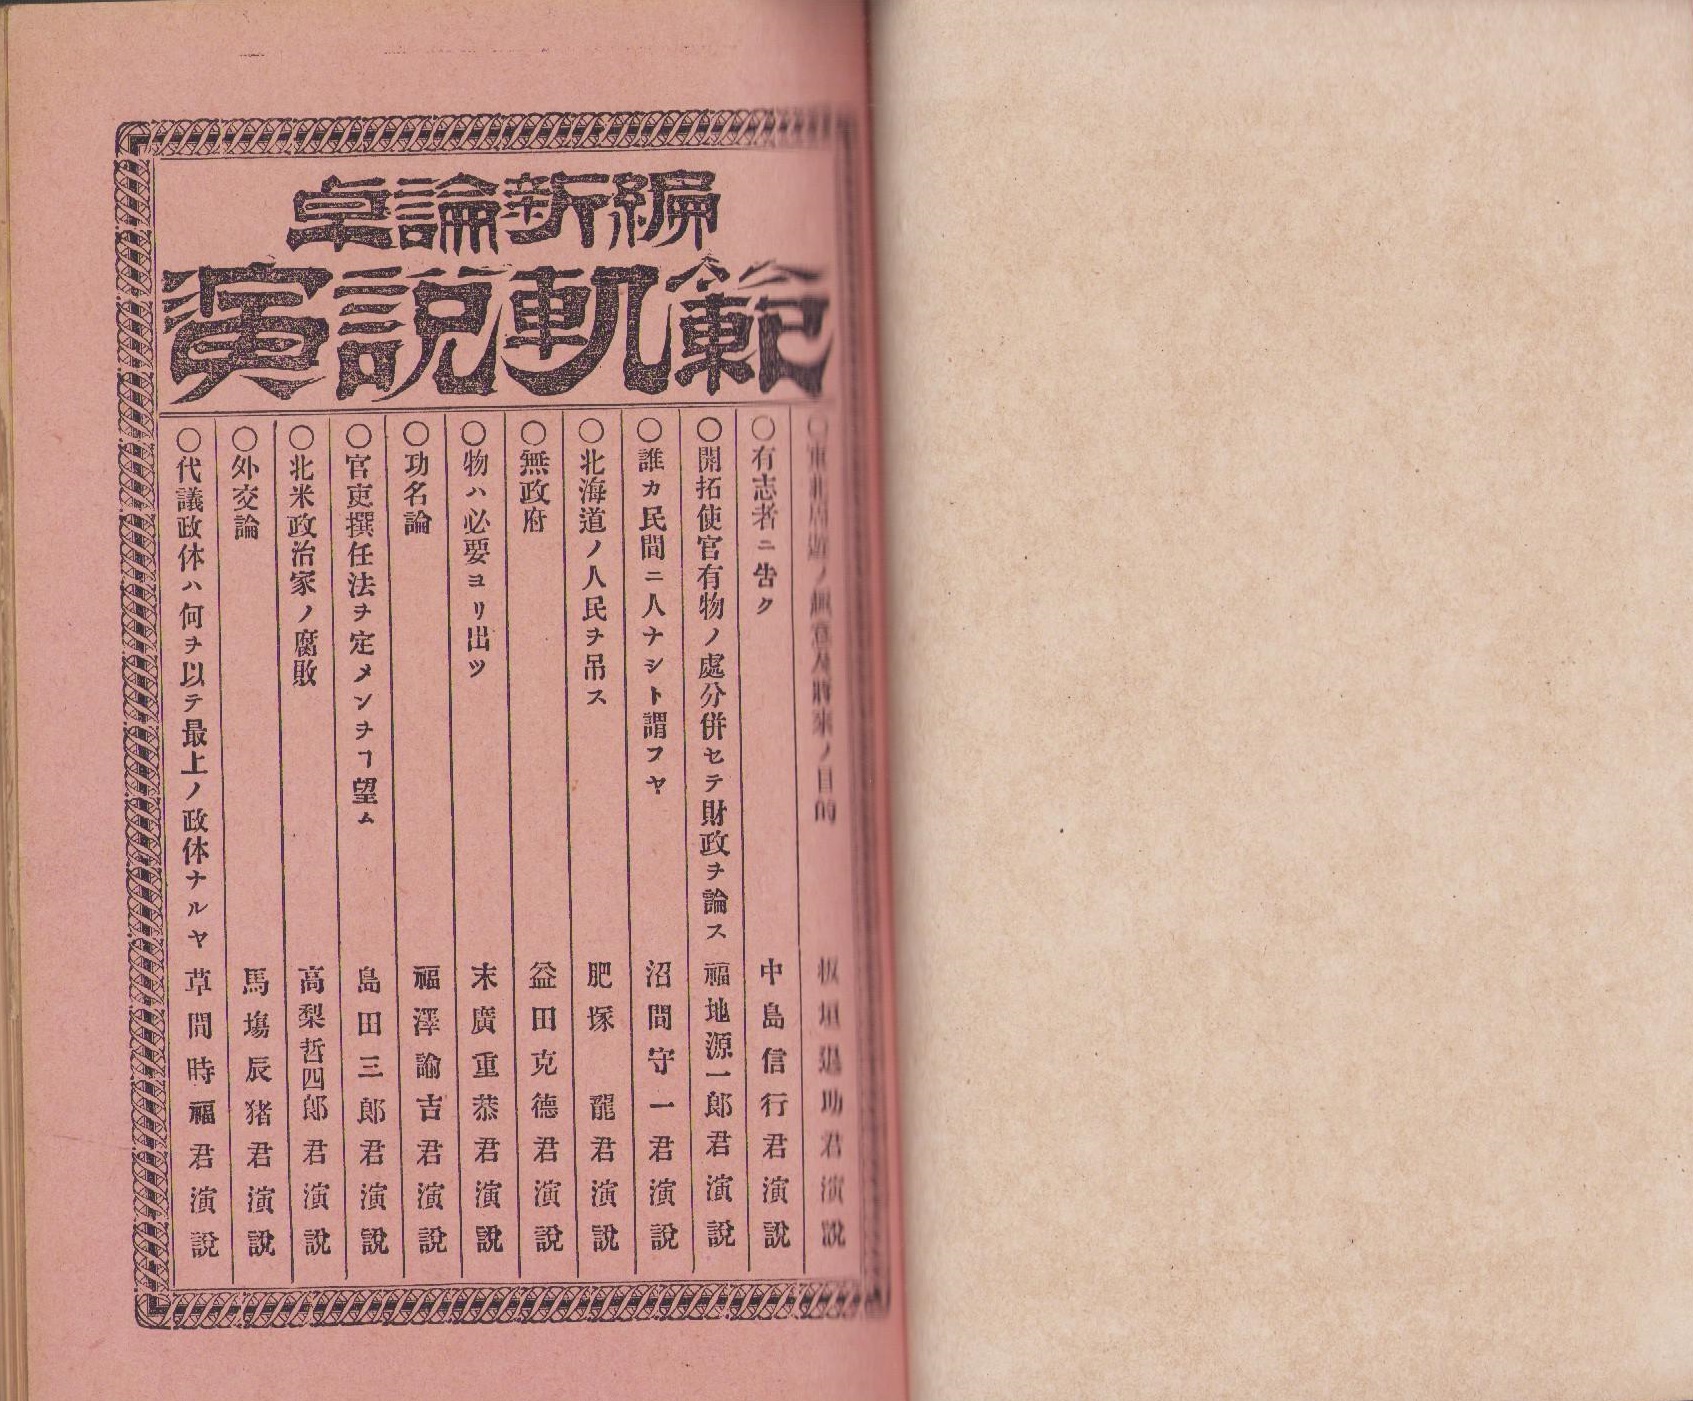 卓論新編
演説軌範
○東北周遊ノ趣意及將來ノ目的 板垣退助君演説
○有志者ニ告ク 中島信行君演説
○開拓使官有物ノ處分併セテ財政ヲ論ス 福地源一郎君演説
○誰カ民間ニ人ナシト謂フヤ 沼間守一君演説
○北海道ノ人民ヲ吊ス 肥塚龍君演説
○無政府 益田克德君演説
○物ハ必要ヨリ出ツ 末廣重恭君演説
○功名論 福澤諭吉君演説
○官吏撰任法ヲ定メンヿヲ望ム 島田三郎君演説
○北米政治家ノ腐敗 高梨哲四郎君演説
○外交論 馬塲辰猪君演説
○代議政体ハ何ヲ以テ最上ノ政体ナルヤ 草間時福君演説